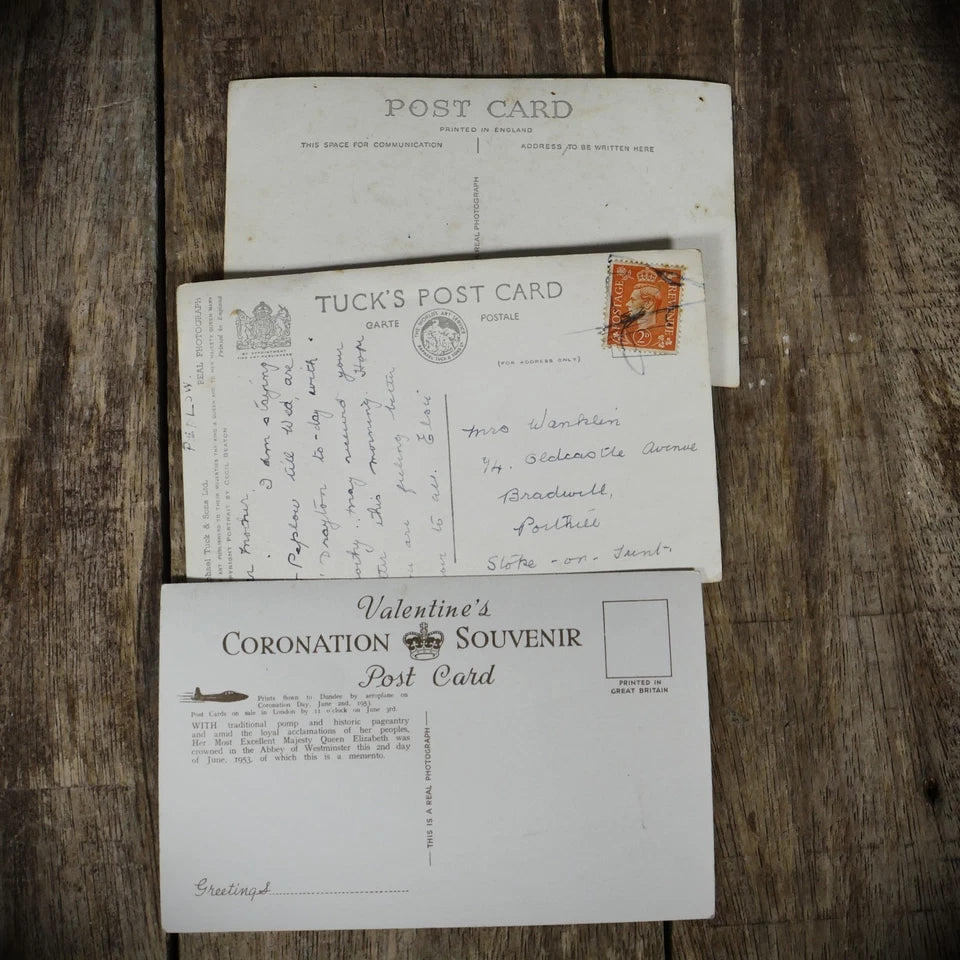 POST CARD
PRINTED IN ENGLAND
THIS SPACE FOR COMMUNICATION
ADDRESS TO BE WRITTEN HERE
REAL PHOTOGRAPH
TUCK'S POST CARD
CARTE
POSTALE
BY APPOINTMENT
THE WORLD'S ART SERVICE
RAPHAEL TUCK & SONS LTD
(FOR ADDRESS ONLY)
POSTAGE
REVENUE
2D
REAL PHOTOGRAPH
Printed in England
PEPLOW.
hael Tuck & Sons Ltd.
ART PUBLISHERS TO THEIR MAJESTIES THE KING & QUEEN AND TO HER MAJESTY QUEEN MARY
YRIGHT PORTRAIT BY CECIL BEATON
r Mother,
I am staying
Peplow till Wed, are
Drayton to-day with
may received your
this morning. Hope
are feeling better
to all. Elsie
Mrs Wanklin
94. Oldcastle Avenue
Bradwell,
Porthill
Stoke-on-Trent
Valentine's
CORONATION SOUVENIR
Post Card
PRINTED IN
GREAT BRITAIN
Prints flown to Dundee by aeroplane on
Coronation Day, June 2nd, 1953.
Post Cards on sale in London by 11 o'clock on June 3rd.
WITH traditional pomp and historic pageantry
and amid the loyal acclamations of her peoples,
Her Most Excellent Majesty Queen Elizabeth was
crowned in the Abbey of Westminster this 2nd day
of June, 1953, of which this is a memento.
THIS IS A REAL PHOTOGRAPH
Greetings